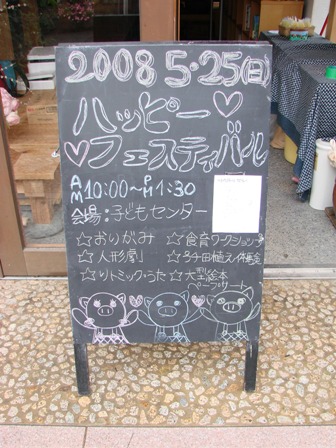 2008 5・25(日)
ハッピー♡
♡フェスティバル
AM10:00～PM1:30
会場:子どもセンター
☆おりがみ ☆食育ワークショップ
☆人形劇 ☆プチ田植え体験会
☆リトミック・うた ☆大型絵本
ペープサート